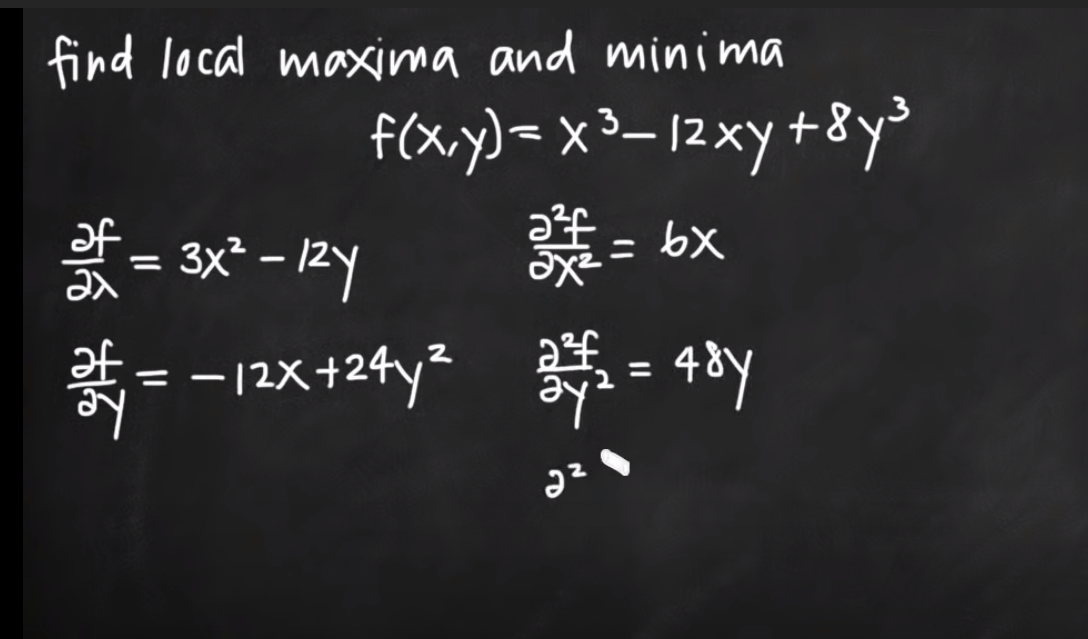 find local maxima and minima
f(x,y) = x³ – 12xy + 8y³
∂f/∂x = 3x² – 12y
∂²f/∂x² = 6x
∂f/∂y = –12x + 24y²
∂²f/∂y² = 48y
∂²